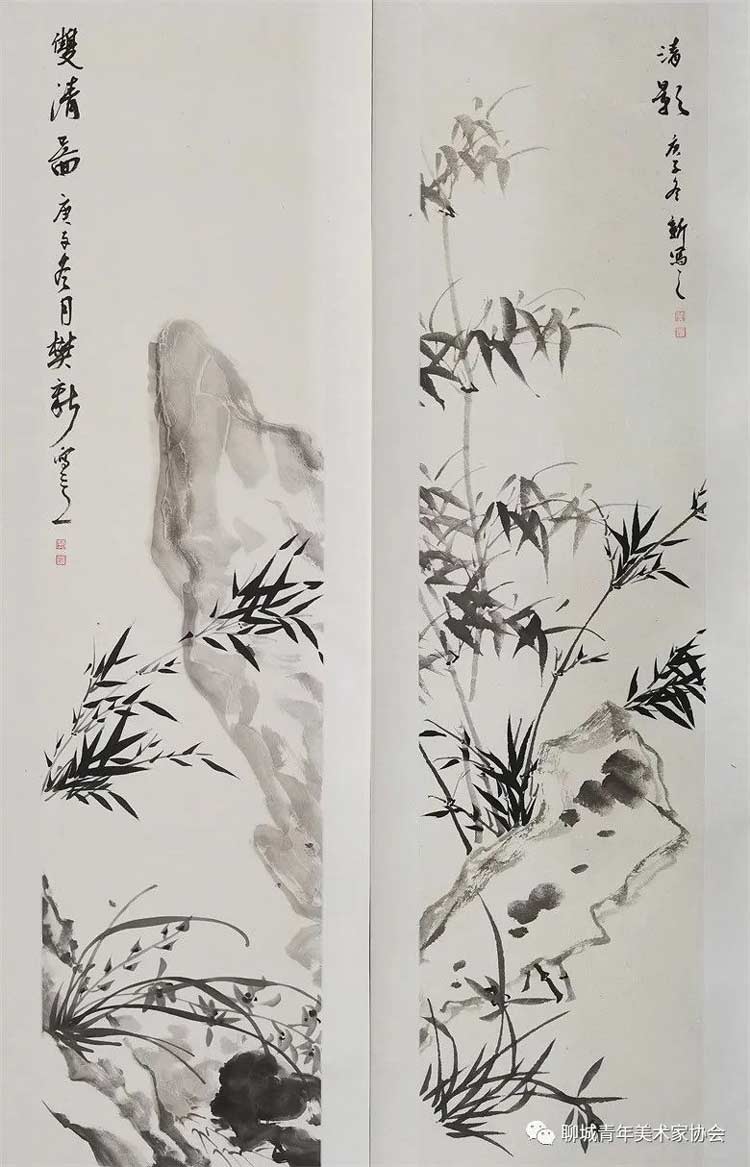 清影 庚子冬 新写之
雙清圖 庚子冬月樊新写之
聊城青年美术家协会